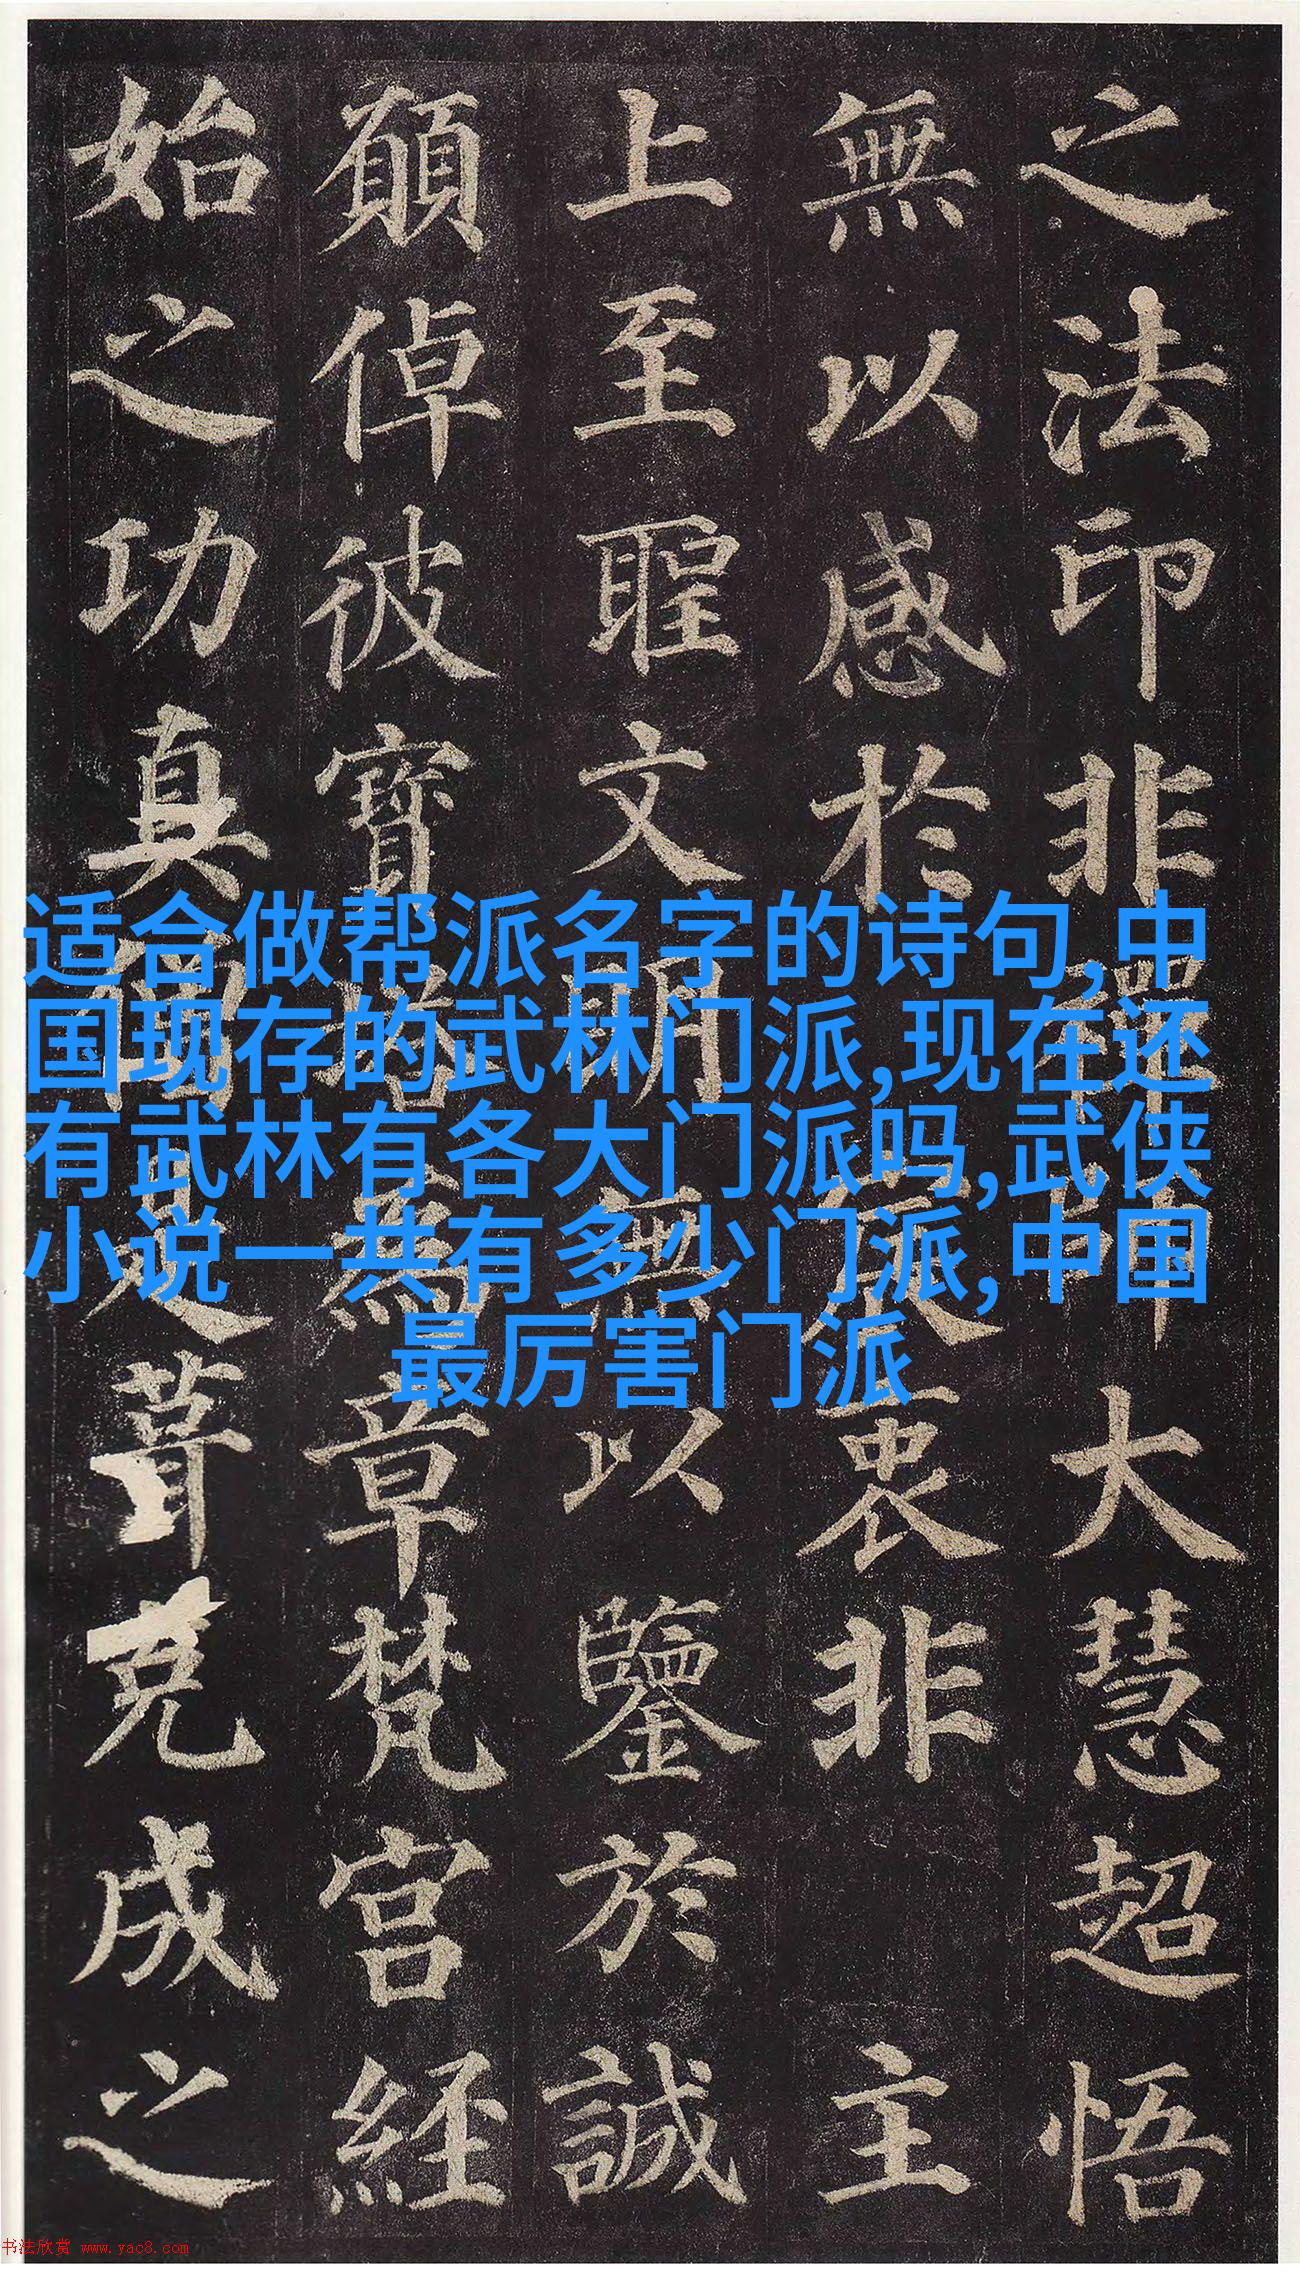 之法印非禪師大慧超悟
無以感於宸衷非主
上至聖文明無以鑒於誠
願倬彼寶塔為章梵宮經
始之功真僧是葺克成之
适合做帮派名字的诗句,中
国现存的武林门派,现在还
有武林有各大门派吗,武侠
小说一共有多少门派,中国
最厉害门派
书法欣赏 www.yac8.com